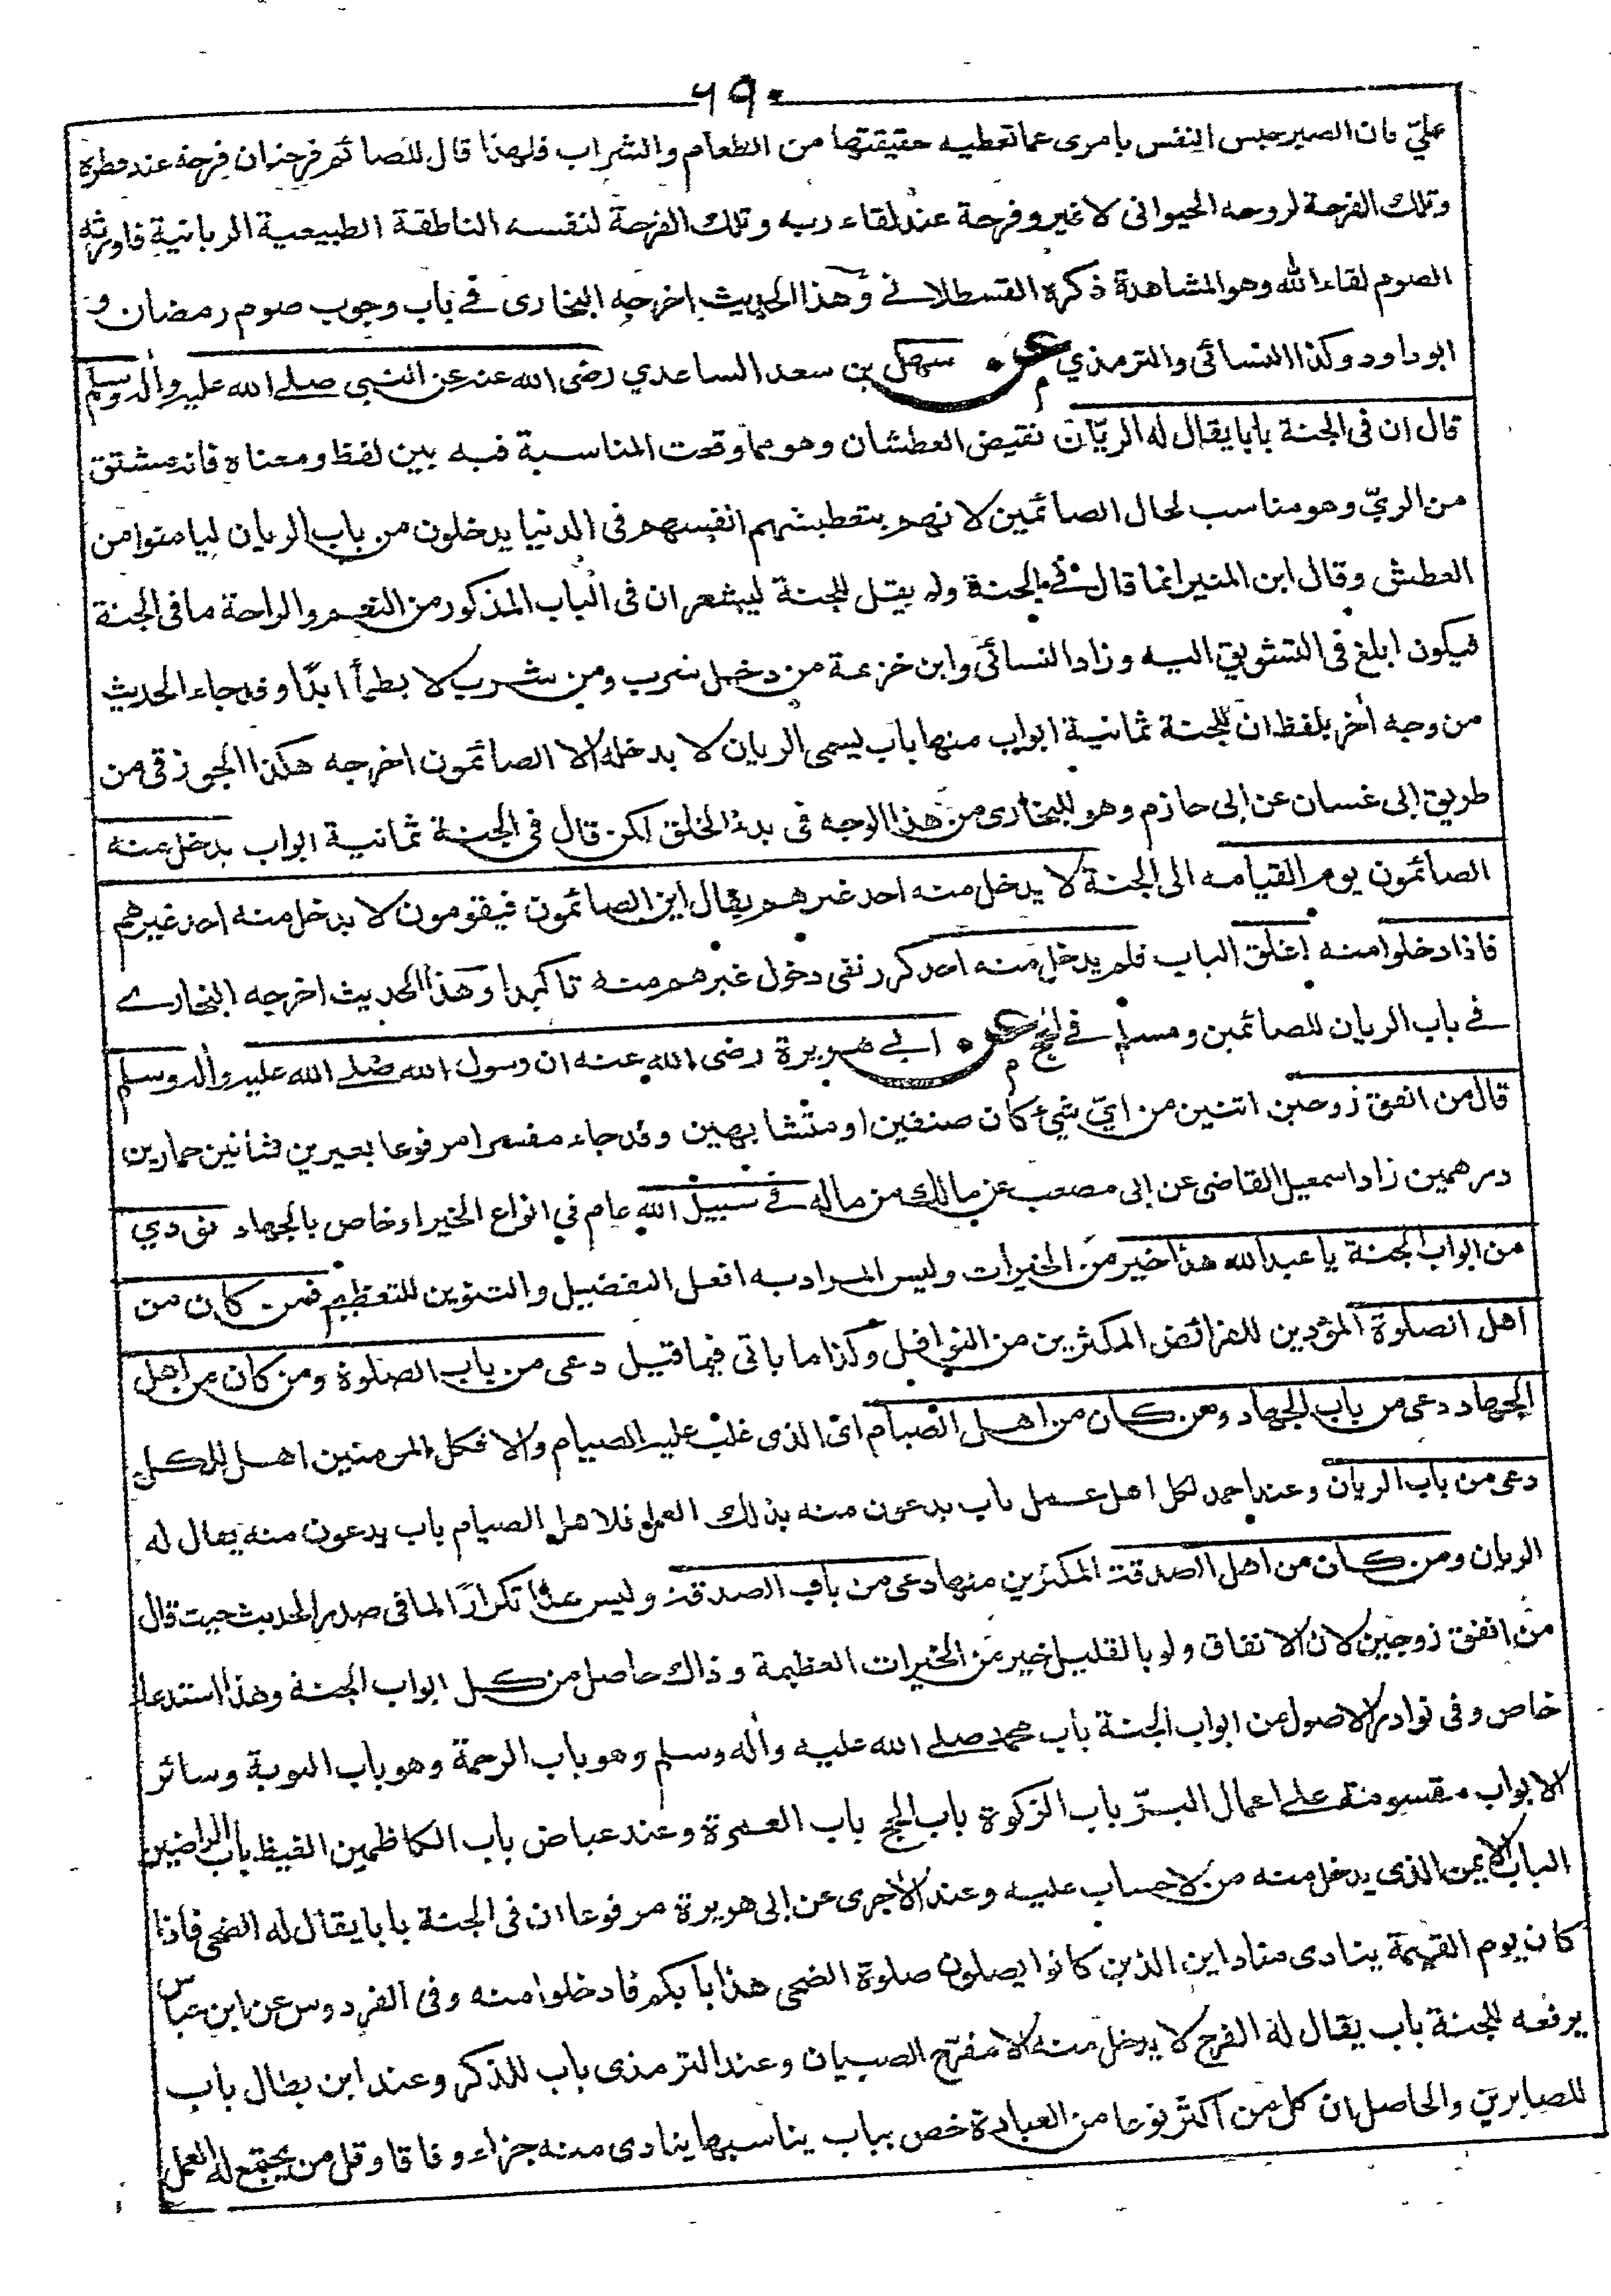 ٦٩٠
عليّ فان الصبر حبس النفس بامرى عما تعطيه حقيقتها من الطعام والشراب فلهذا قال للصائم فرحتان فرحة عند فطره
وتلك الفرحة لروحه الحيوانى لا غير وفرحة عند لقاء ربه وتلك الفرحة لنفسه الناطقة الطبيعية الربانية فاورثه
الصوم لقاء الله وهو المشاهدة ذكره القسطلانے وهذا الحديث اخرجه البخارى فے باب وجوب صوم رمضان و
ابو داود وكذا النسائى والترمذي عن م سهل بن سعد الساعدي رضى الله عنه عن النبى صلے الله عليه واله وسلم
قال ان فى الجنة بابا يقال له الريّان نقيض العطشان وهو مما وقعت المناسبة فيه بين لفظه ومعناه فانه مشتق
من الريّ وهو مناسب لحال الصائمين لانهم بتعطيشهم انفسهم فى الدنيا يدخلون من باب الريان ليامنوا من
العطش وقال ابن المنير انما قال فے الجنة ولم يقل للجنة ليشعر ان فى الباب المذكور من النعيم والراحة ما فى الجنة
فيكون ابلغ فى التشويق اليه وزاد النسائى وابن خزيمة من دخل شرب ومن شرب لا يظمأ ابدًا وقد جاء الحديث
من وجه أخر بلفظ ان للجنة ثمانية ابواب منها باب يسمى الريان لا يدخله الا الصائمون اخرجه هكذا الجوزقى من
طريق ابى غسان عن ابى حازم وهو للبخارى من هذا الوجه فى بدء الخلق لكن قال فى الجنة ثمانية ابواب يدخل منه
الصائمون يوم القيامه الى الجنة لا يدخل منه احد غيرهم يقال اين الصائمون فيقومون لا يدخل منه احد غيرهم
فاذا دخلوا منه اغلق الباب فلم يدخل منه احد كرر نفى دخول غيرهم منه تاكيدا وهذا الحديث اخرجه البخارے
فے باب الريان للصائمين ومسلم فے الحج عن م ابے هريرة رضى الله عنه ان رسول الله صلے الله عليه واله وسلم
قال من انفق زوجين اثنين من ايّ شيء كان صنفين او متشابهين وقد جاء مفسرا مرفوعا بعيرين شاتين حمارين
درهمين زاد اسمعيل القاضى عن ابى مصعب عن مالك من ماله فے سبيل الله عام في انواع الخير او خاص بالجهاد نودي
من ابواب الجنة يا عبد الله هذا خير من الخيرات وليس المراد به افعل التفضيل والتنوين للتعظيم فمن كان من
اهل الصلوة المؤدين للفرائض المكثرين من النوافل وكذا ما ياتى فيما قيل دعى من باب الصلوة ومن كان من اهل
الجهاد دعى من باب الجهاد ومن كان من اهل الصيام اى الذى غلب عليه الصيام والا فكل المؤمنين اهل للكل
دعى من باب الريان وعند احمد لكل اهل عمل باب يدعون منه بذلك العمل فلاهل الصيام باب يدعون منه يقال له
الريان ومن كان من اهل الصدقة المكثرين منها دعى من باب الصدقة وليس هذا تكرارًا لما فى صدر الحديث حيث قال
من انفق زوجين لان الانفاق ولو بالقليل خير من الخيرات العظيمة وذاك حاصل من كل ابواب الجنة وهذا استدعاء
خاص وفى نوادر الاصول من ابواب الجنة باب محمد صلے الله عليه وأله وسلم وهو باب الرحمة وهو باب التوبة وسائر
الابواب مقسومة على اعمال البرّ باب الزكوة باب الحج باب العمرة وعند عياض باب الكاظمين الغيظ باب الراضين
الباب الايمن الذى يدخل منه من لا حساب عليه وعند الأجرى عن ابى هريرة مرفوعا ان فى الجنة بابا يقال له الضحى فاذا
كان يوم القيمة ينادى مناد اين الذين كانوا يصلون صلوة الضحى هذا بابكم فادخلوا منه وفى الفردوس عن ابن عباس
يرفعه للجنة باب يقال له الفرح لا يدخل منه الا مفرّح الصبيان وعند الترمذى باب للذكر وعند ابن بطال باب
للصابرين والحاصل ان كل من اكثر نوعا من العبادة خص بباب يناسبها ينادى منه جزاء وفاقا وقل من يجتمع له العمل